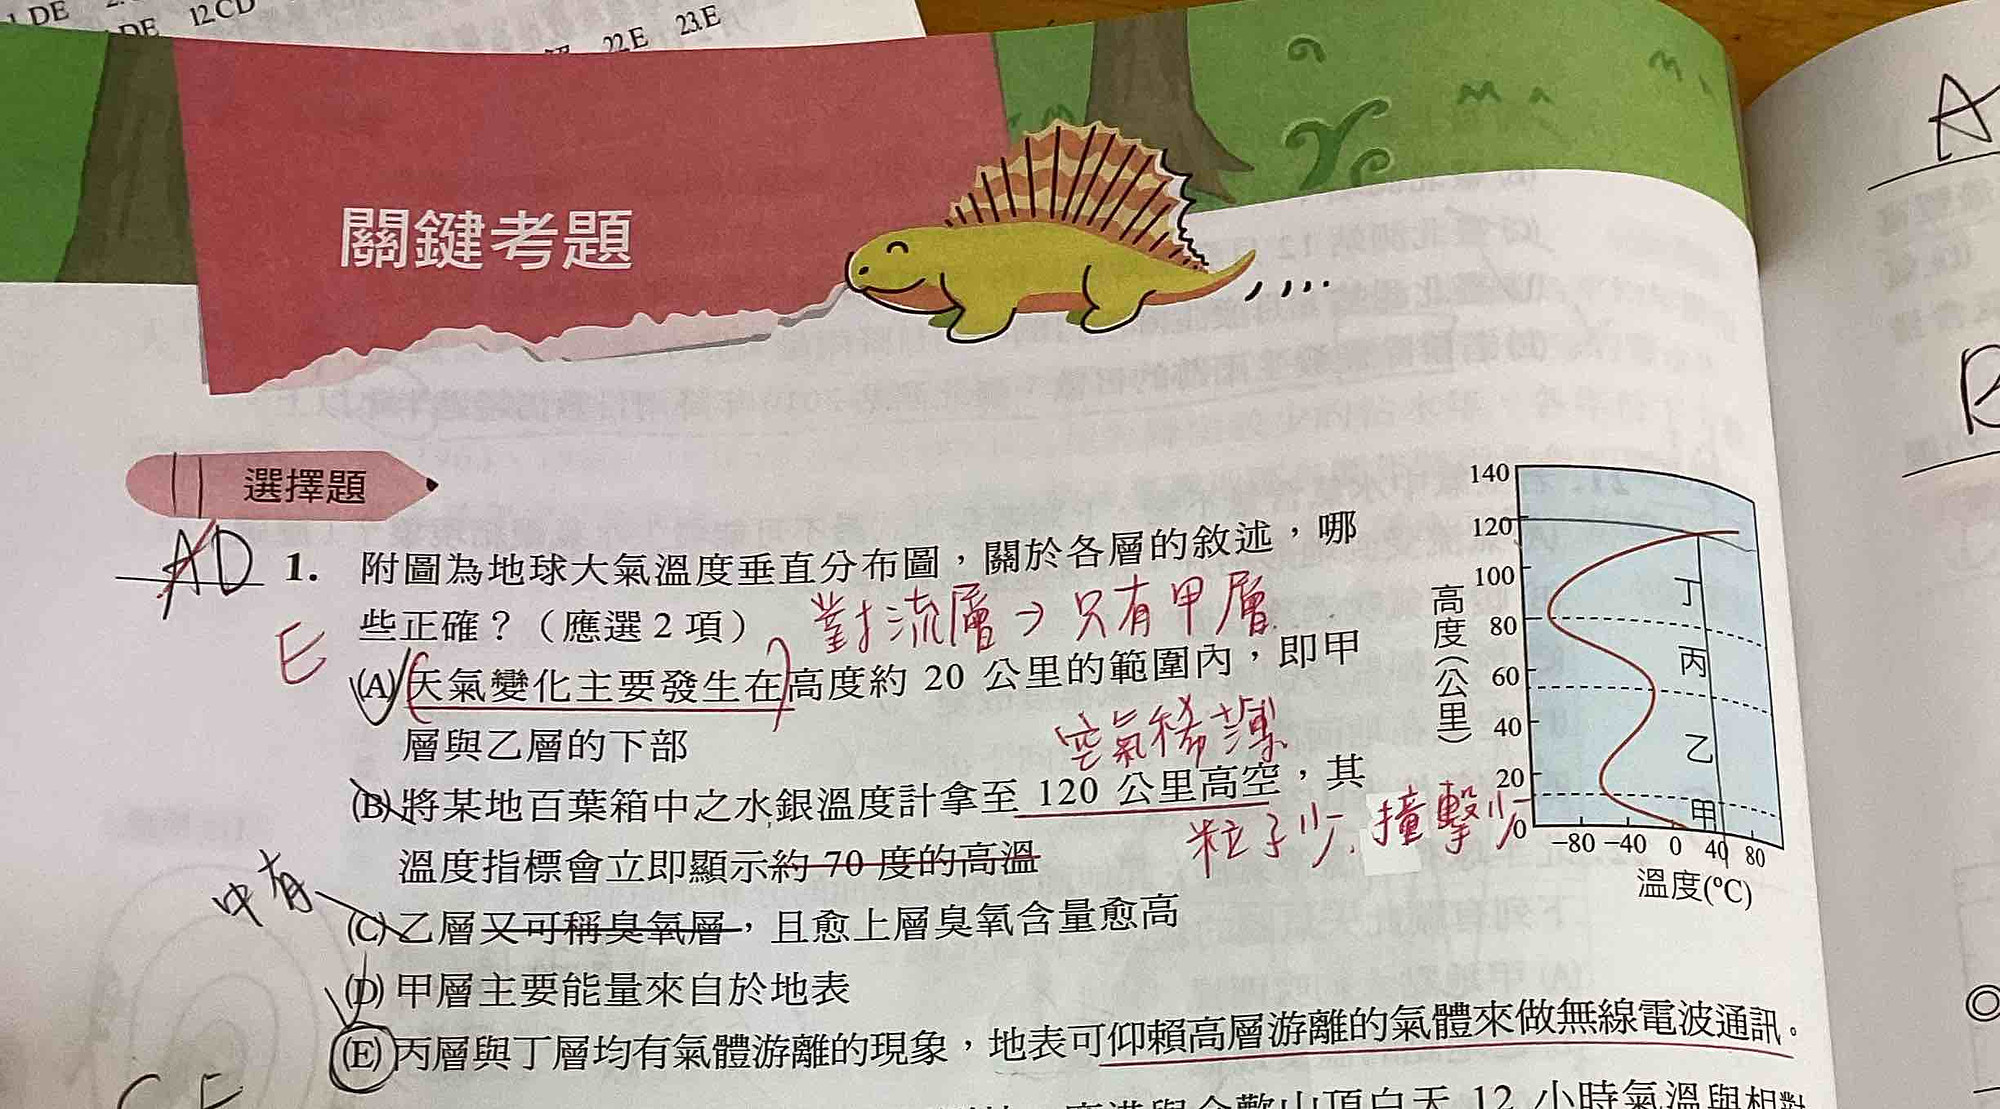 DE
DE 12.CD
22.E 23.E
關鍵考題
A
B
選擇題
AD
E
1. 附圖為地球大氣溫度垂直分布圖,關於各層的敘述,哪
些正確?(應選 2 項)
對流層→只有甲層
(A) 天氣變化主要發生在高度約 20 公里的範圍內,即甲
層與乙層的下部
空氣稀薄
(B) 將某地百葉箱中之水銀溫度計拿至 120 公里高空,其
粒子少、撞擊少
溫度指標會立即顯示約 70 度的高溫
中有
(C) 乙層又可稱臭氧層,且愈上層臭氧含量愈高
(D) 甲層主要能量來自於地表
(E) 丙層與丁層均有氣體游離的現象,地表可仰賴高層游離的氣體來做無線電波通訊。
高度(公里)
140
120
100
80
60
40
20
0
丁
丙
乙
甲
-80 -40 0 40 80
溫度(°C)
CE
頂白天 12 小時氣溫與相對